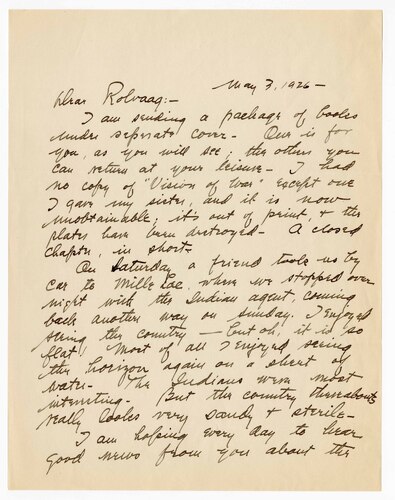 May 3, 1926 -
Dear Rolvaag:-
I am sending a package of books
under seperate cover - One is for
you, as you will see; the others you
can return at your leisure - I had
no copy of "Vision of War" except one
I gave my sister, and it is now
unobtainable; it's out of print, & the
plates have been destroyed - A closed
chapter, in short -
On Saturday a friend took us by
car to Mille Lac, where we stopped over
night with the Indian agent, coming
back another way on Sunday. I enjoyed
seeing the country - but oh, it is so
flat. Most of all I enjoyed seeing
the horizon again on a sheet of
water - The Indians were most
interesting - But the country thereabouts
really looks very sandy & sterile -
I am hoping every day to hear
good news from you about the